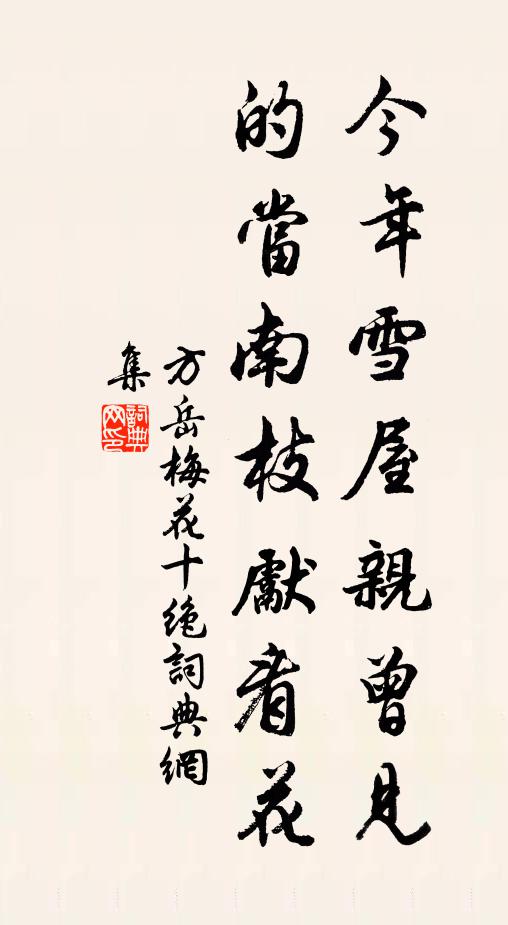 今年雪屋親曾見
的當南枝獻者花
方岳梅花十絕詞典網
集
詞典網印